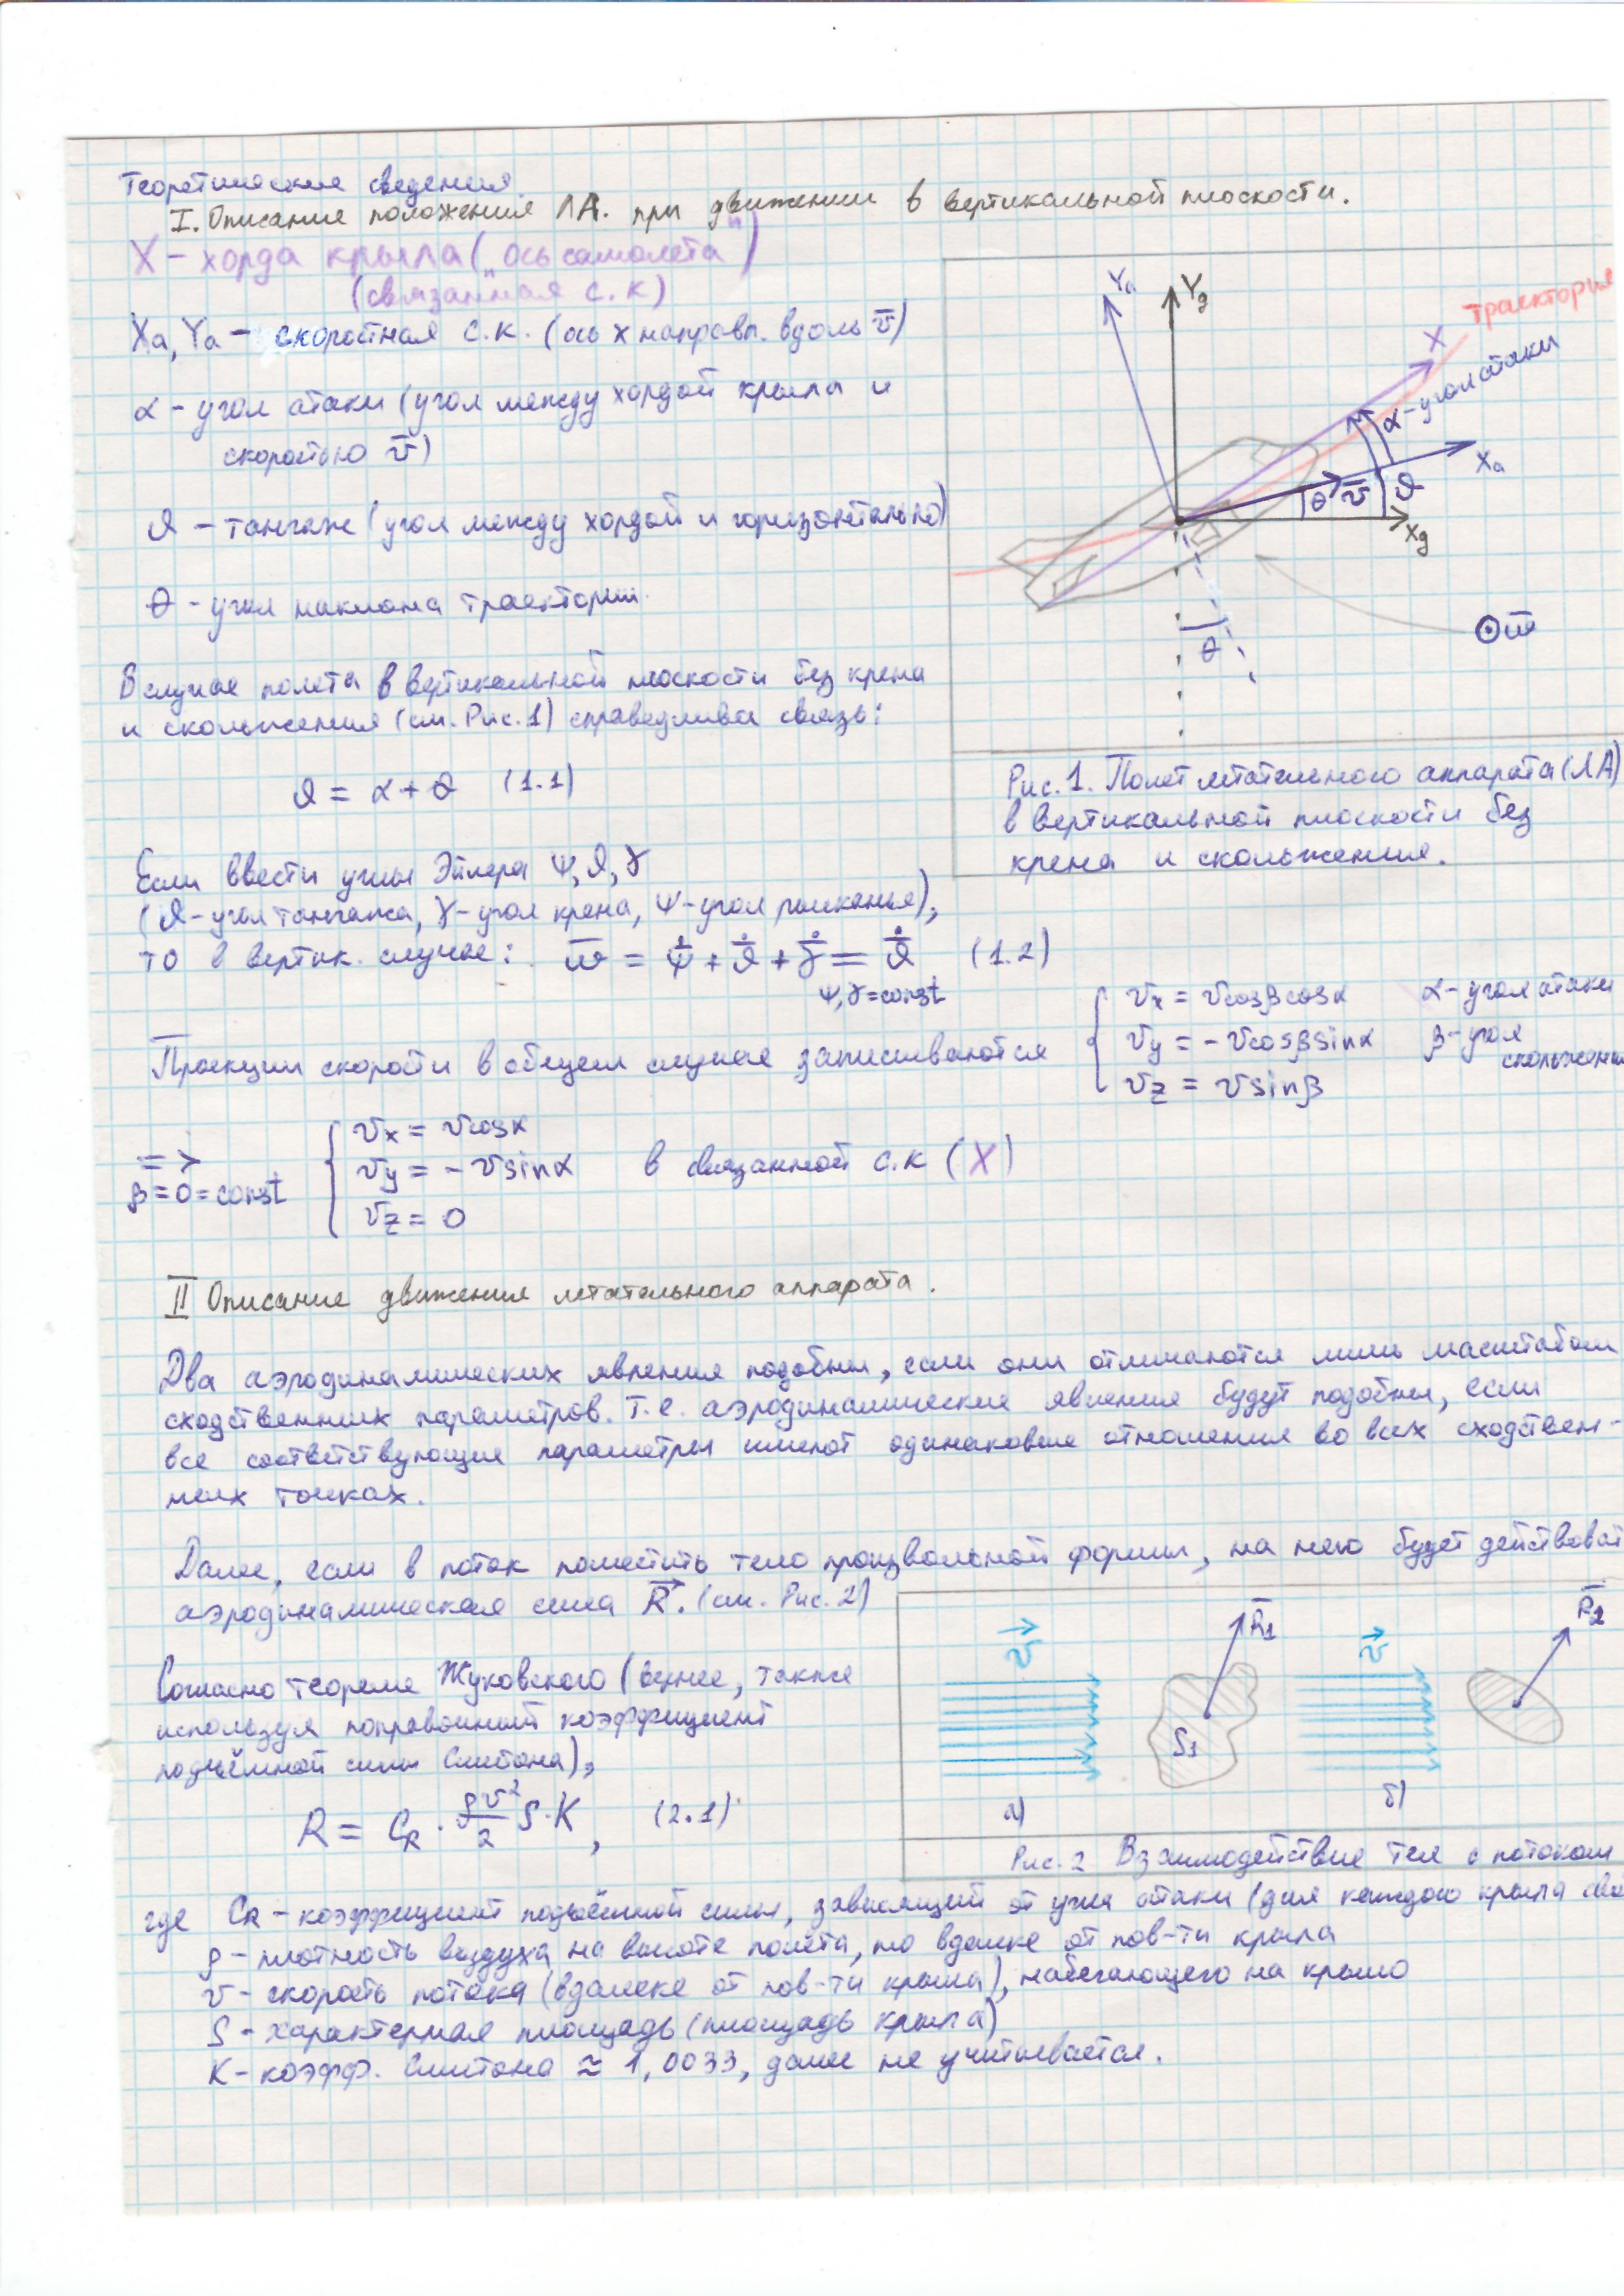 Теоретические сведения.
I. Описание положения ЛА. при движении в вертикальной плоскости.
X – хорда крыла („ось самолета")
(связанная с.к)
Xa, Ya – скоростная с.к. (ось x направл. вдоль v̅)
α – угол атаки (угол между хордой крыла и
скоростью v̅)
ϑ – тангаж (угол между хордой и горизонталью)
θ – угол наклона траектории.
В случае полета в вертикальной плоскости без крена
и скольжения (см. Рис. 1) справедлива связь:
ϑ = α + θ (1.1)
Ya
Yg
траектория
X
α – угол атаки
Xa
θ
v̅
ϑ
Xg
ω̅
θ
Рис. 1. Полет летательного аппарата (ЛА)
в вертикальной плоскости без
крена и скольжения.
Если ввести углы Эйлера Ψ, ϑ, γ
(ϑ – угол тангажа, γ – угол крена, Ψ – угол рысканья),
то в вертик. случае: ω̅ = Ψ̇ + ϑ̇ + γ̇ = ϑ̇ (1.2)
Ψ, γ = const
Проекции скорости в общем случае записываются
vx = v cosβ cosα
vy = - v cosβ sinα
vz = v sinβ
α – угол атаки
β – угол
скольжения
=>
β = 0 = const
vx = v cosα
vy = - v sinα в связанной с.к (X)
vz = 0
II Описание движения летательного аппарата.
Два аэродинамических явления подобны, если они отличаются лишь масштабом
сходственных параметров. Т.е. аэродинамические явления будут подобны, если
все соответствующие параметры имеют одинаковые отношения во всех сходствен-
ных точках.
Далее, если в поток поместить тело произвольной формы, на него будет действоват
аэродинамическая сила R⃗. (см. Рис. 2)
Согласно теореме Жуковского (также
используя поправочный коэффициент
подъёмной силы Смитона),
R = C_R · ρv²/2 S · K, (2.1)
v⃗
R̅1
S1
а)
v⃗
R̅2
б)
Рис. 2 Взаимодействие тел с потоком
где C_R – коэффициент подъёмной силы, зависящий от угла атаки (для каждого крыла
ρ – плотность воздуха на высоте полёта, но вдалеке от пов-ти крыла
v – скорость потока (вдалеке от пов-ти крыла), набегающего на крыло
S – характерная площадь (площадь крыла)
K – коэфф. Смитона ≈ 1,0033, далее не учитывается.